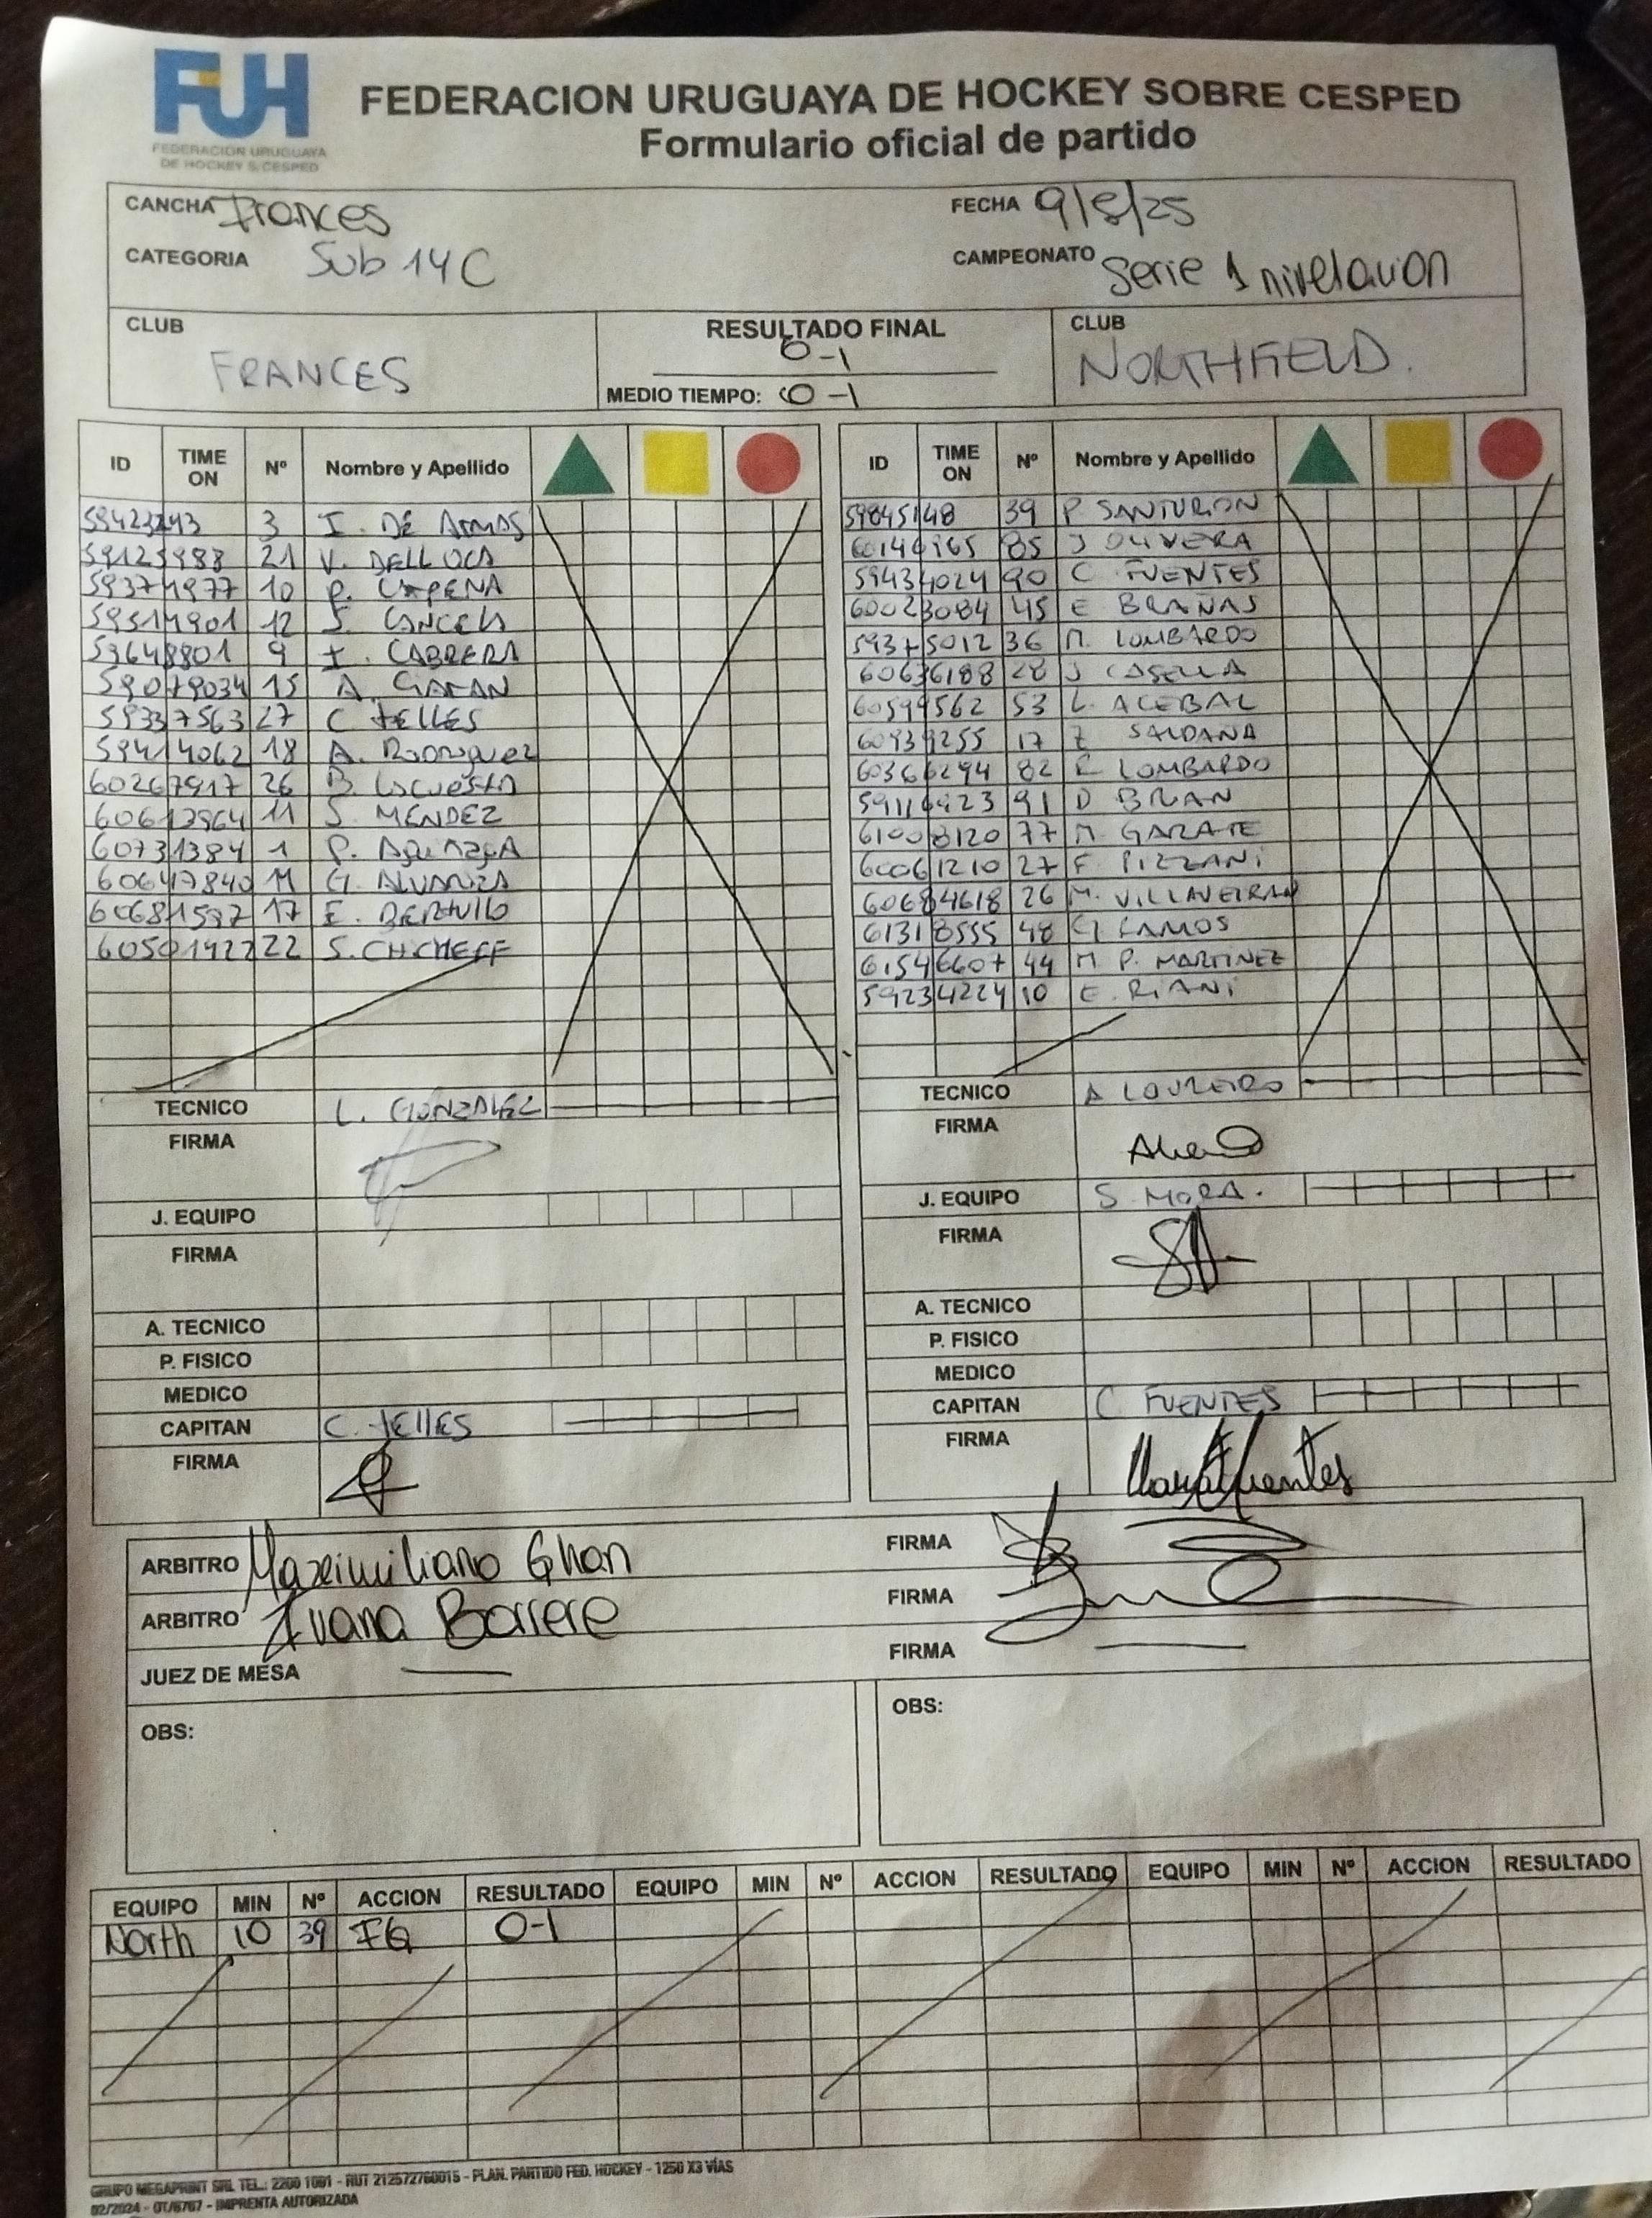 FUH
FEDERACION URUGUAYA
DE HOCKEY S.CESPED
FEDERACION URUGUAYA DE HOCKEY SOBRE CESPED
Formulario oficial de partido
CANCHA Frances FECHA 9/8/25
CATEGORIA Sub 14 C CAMPEONATO Serie 1 nivelacion
CLUB RESULTADO FINAL CLUB
FRANCES 0-1 NORTHFIELD.
MEDIO TIEMPO: 0-1
ID TIME ON Nº Nombre y Apellido
3 I. DE ARMAS
21 V. DELLOCA
10 P.
12 S. CANCELA
9 I. CABRERA
59079034 15 A.
59337563 27 C TELLES
59414062 18 A. Rodriguez
60267917 26 B. Lacuesta
11 S. MENDEZ
60731384 1 P.
60647840 11 G.
17 E. BERTULLO
22 S. CHICHEFF
TECNICO L. GONZALEZ
FIRMA
J. EQUIPO
FIRMA
A. TECNICO
P. FISICO
MEDICO
CAPITAN C. TELLES
FIRMA
ID TIME ON Nº Nombre y Apellido
59845148 39 P SANTURION
85 J OLIVERA
59434024 90 C FUENTES
60023084 45 E BRAÑAS
59375012 36 M. LOMBARDO
60636188 28 J CASELLA
60599562 53 L. ACEBAL
17 Z SALDAÑA
82 R LOMBARDO
91 D BRIAN
61008120 77 M. GARATE
60061210 27 F PIZZANI
60684618 26 M. VILLAVEIRAN
61318555 48 G RAMOS
61546607 44 M P. MARTINEZ
59234224 10 E. RIANI
TECNICO A LOUREIRO
FIRMA
J. EQUIPO S. MORA.
FIRMA
A. TECNICO
P. FISICO
MEDICO
CAPITAN C FUENTES
FIRMA
ARBITRO Maximiliano Ghan FIRMA
ARBITRO Ivana Barrere FIRMA
JUEZ DE MESA FIRMA
OBS: OBS:
EQUIPO MIN Nº ACCION RESULTADO EQUIPO MIN Nº ACCION RESULTADO EQUIPO MIN Nº ACCION RESULTADO
North 10 39 FG 0-1
GRUPO MEGAPRINT SRL TEL.: 2200 1091 - RUT 212572760015 - PLAN. PARTIDO FED. HOCKEY - 1250 X3 VÍAS
02/2024 - OT/6767 - IMPRENTA AUTORIZADA